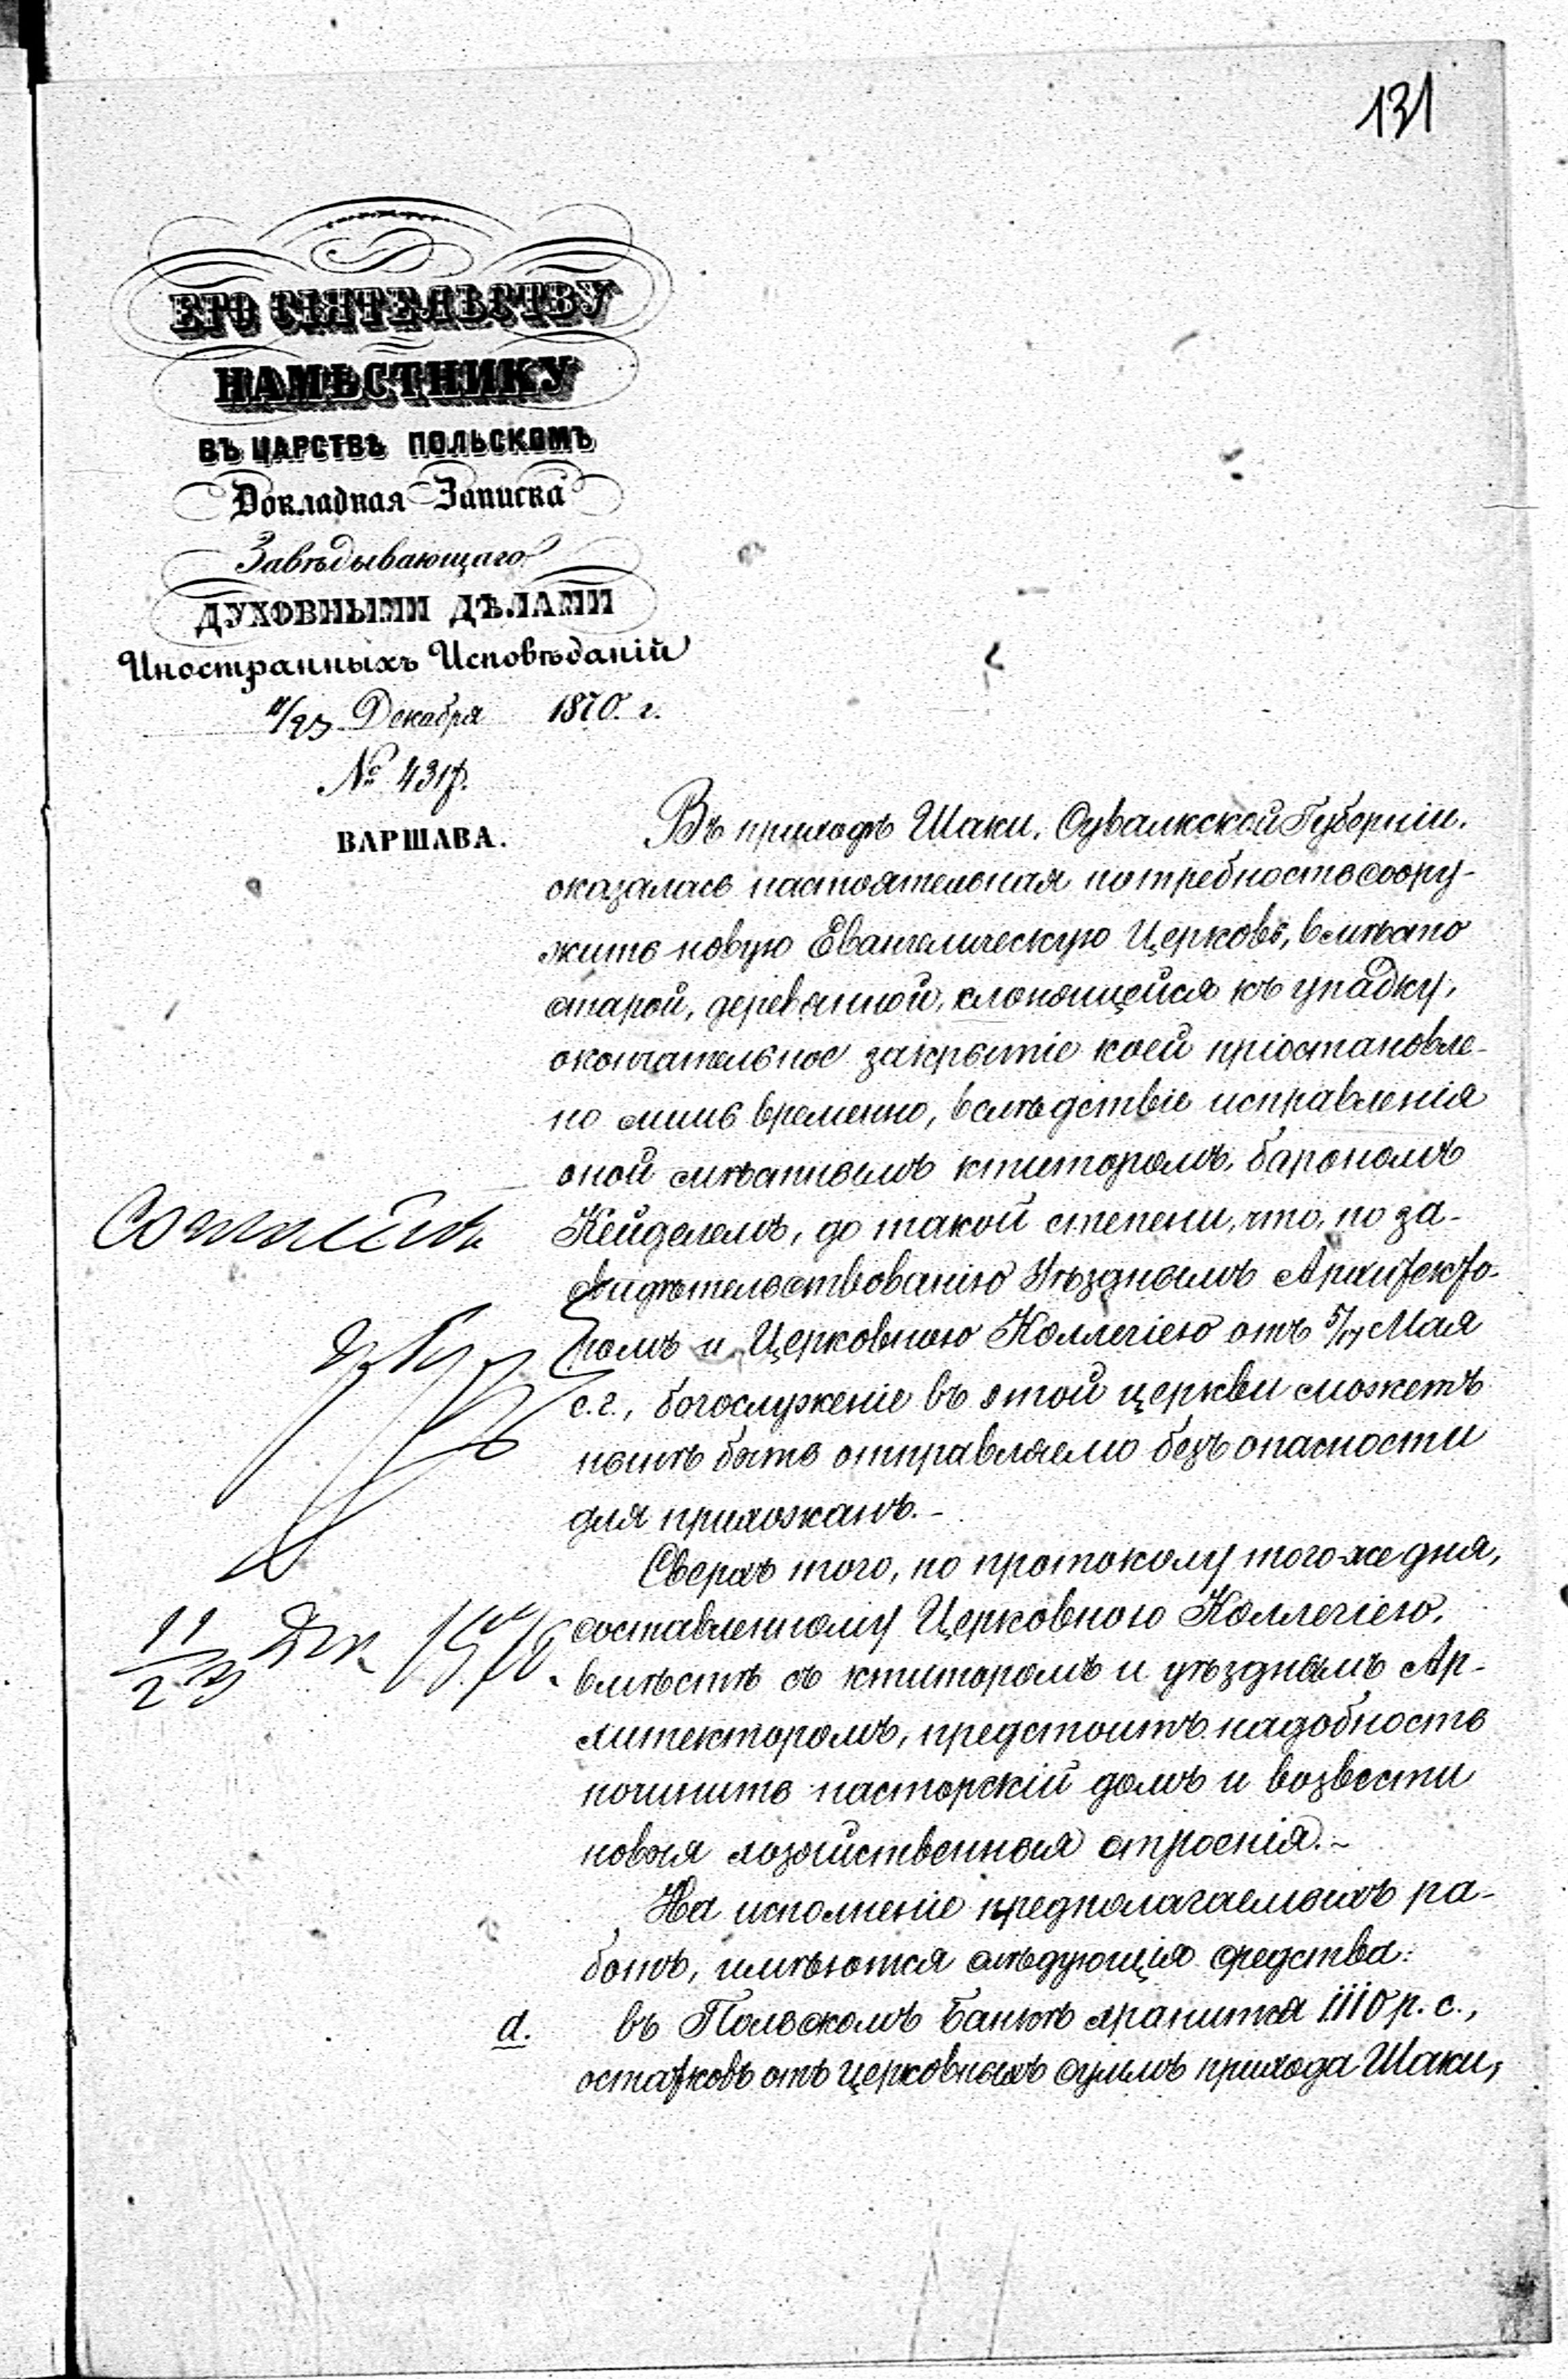 131
ЕГО СІЯТЕЛЬСТВУ
НАМѢСТНИКУ
ВЪ ЦАРСТВѢ ПОЛЬСКОМЪ
Докладная Записка
Завѣдывающаго
ДУХОВНЫМИ ДѢЛАМИ
Иностранныхъ Исповѣданій
11/23 Декабря 1870. г.
№ 4317.
ВАРШАВА.
Въ приходѣ Шаки, Сувалкской Губерніи,
оказалась настоятельная потребность соору-
жить новую Евангелическую Церковь, вмѣсто
старой, деревянной, клонящейся къ упадку,
окончательное закрытіе коей пріостановле-
но лишь временно, вслѣдствіе исправленія
оной мѣстнымъ ктиторомъ, барономъ
Кейделемъ, до такой степени, что, по за-
свидѣтельствованію Уѣзднымъ Архитекто-
ромъ и Церковною Коллегіею отъ 5/17 Мая
с. г., богослуженіе въ этой церкви можетъ
нынѣ быть отправляемо безъ опасности
для прихожанъ. -
Сверхъ того, по протоколу того-же дня,
составленному Церковною Коллегіею,
вмѣстѣ съ ктиторомъ и уѣзднымъ Ар-
хитекторомъ, предстоитъ надобность
починить пасторскій домъ и возвести
новыя хозяйственныя строенія. -
На исполненіе предполагаемыхъ ра-
ботъ, имѣются слѣдующія средства:
d. въ Польскомъ Банкѣ хранится 1110 р. с.,
остатковъ отъ церковныхъ суммъ прихода Шаки,
Согласенъ
11/23 Дек. 1870.